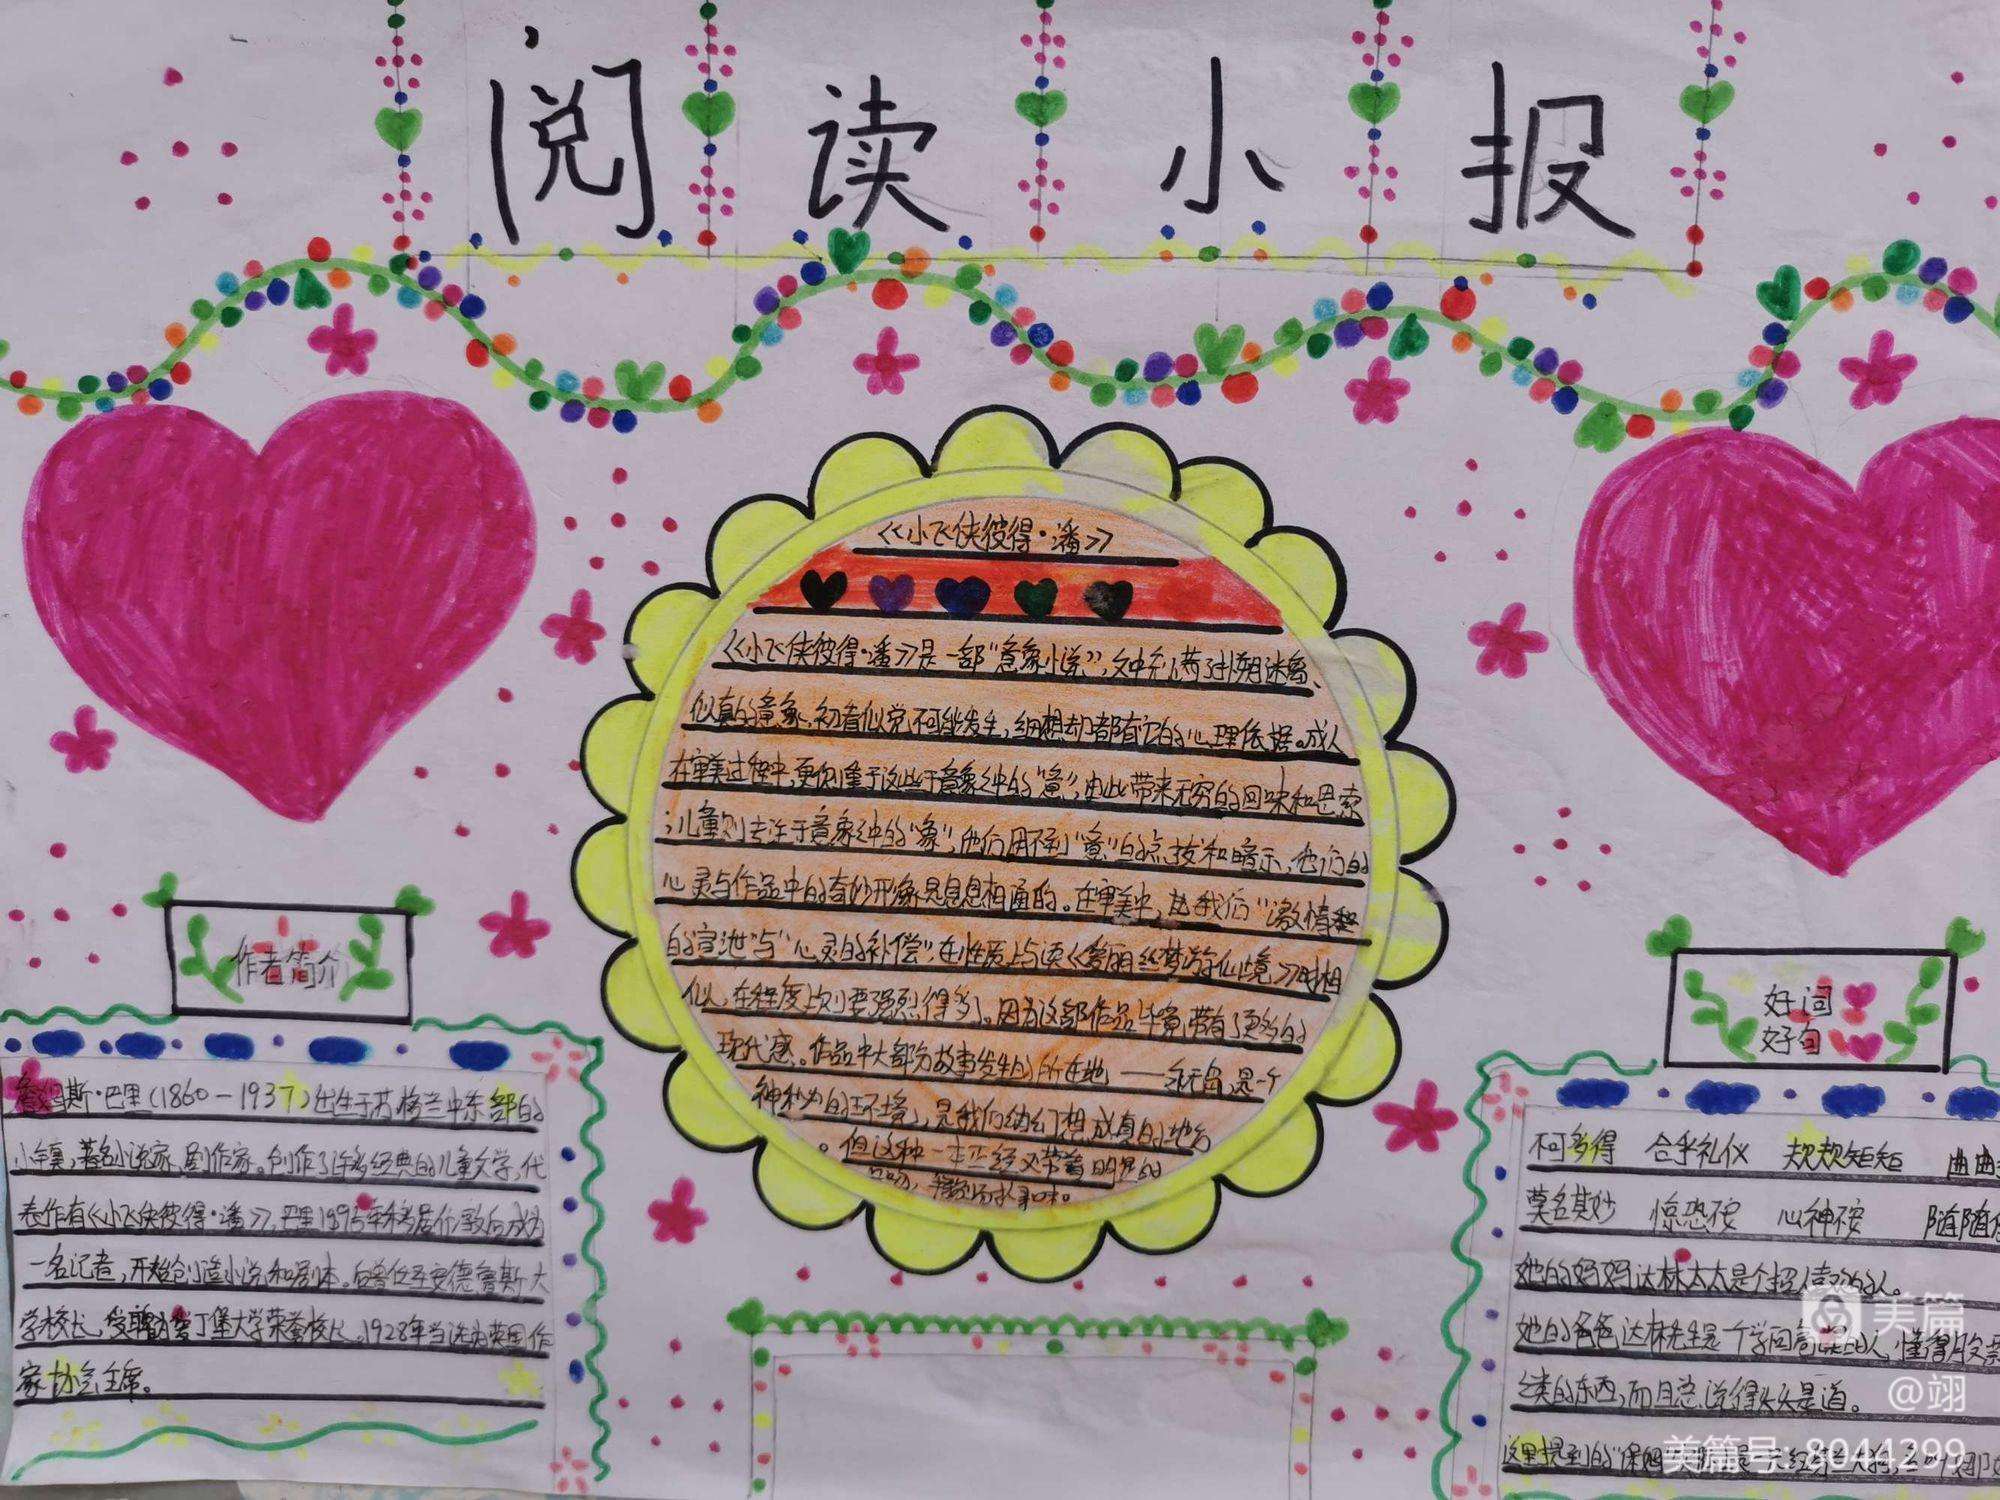 阅读小报
《小飞侠彼得·潘》
《小飞侠彼得·潘》是一部“意象小说”，文中充满了扑朔迷离、
似真的意象。初看似觉不可能发生，细想却都有它的心理依据。成人
在审美过程中，更侧重于这些于意象之中的“意”，由此带来无穷的回味和思索
；儿童则专注于意象之中的“象”，他们用不到“意”的点拨和暗示，他们的
心灵与作品中的奇妙形象是息息相通的。在审美中，我们“激情
的宣泄”与“心灵的补偿”在性质上与读《爱丽丝梦游仙境》时相
似，在程度上则要强烈得多。因为这部作品毕竟带有了更多的
现代感。作品中大部分故事发生的所在地——永无岛，是一个
神秘的环境，是我们的幻想成真的地方
。但这种一本正经又带着明显的
作者简介
詹姆斯·巴里（1860－1937）出生于苏格兰中东部的
小镇，著名小说家、剧作家。创作了许多经典的儿童文学，代
表作有《小飞侠彼得·潘》，巴里
一名记者，开始创造小说和剧本。后曾任圣安德鲁斯大
学校长，受聘为爱丁堡大学荣誉校长。1928年当选为英国作
家协会主席。
好词
好句
不可多得 合乎礼仪 规规矩矩 曲曲
莫名其妙 惊恐不安 心神不安 随随
她的妈妈达林太太是个招人喜欢的人。
她的爸爸达林先生是一个学问高深的人，懂得股票
之类的东西，而且总说得头头是道。
这里提到的“保姆”
美篇
@翊
美篇号: 8044299